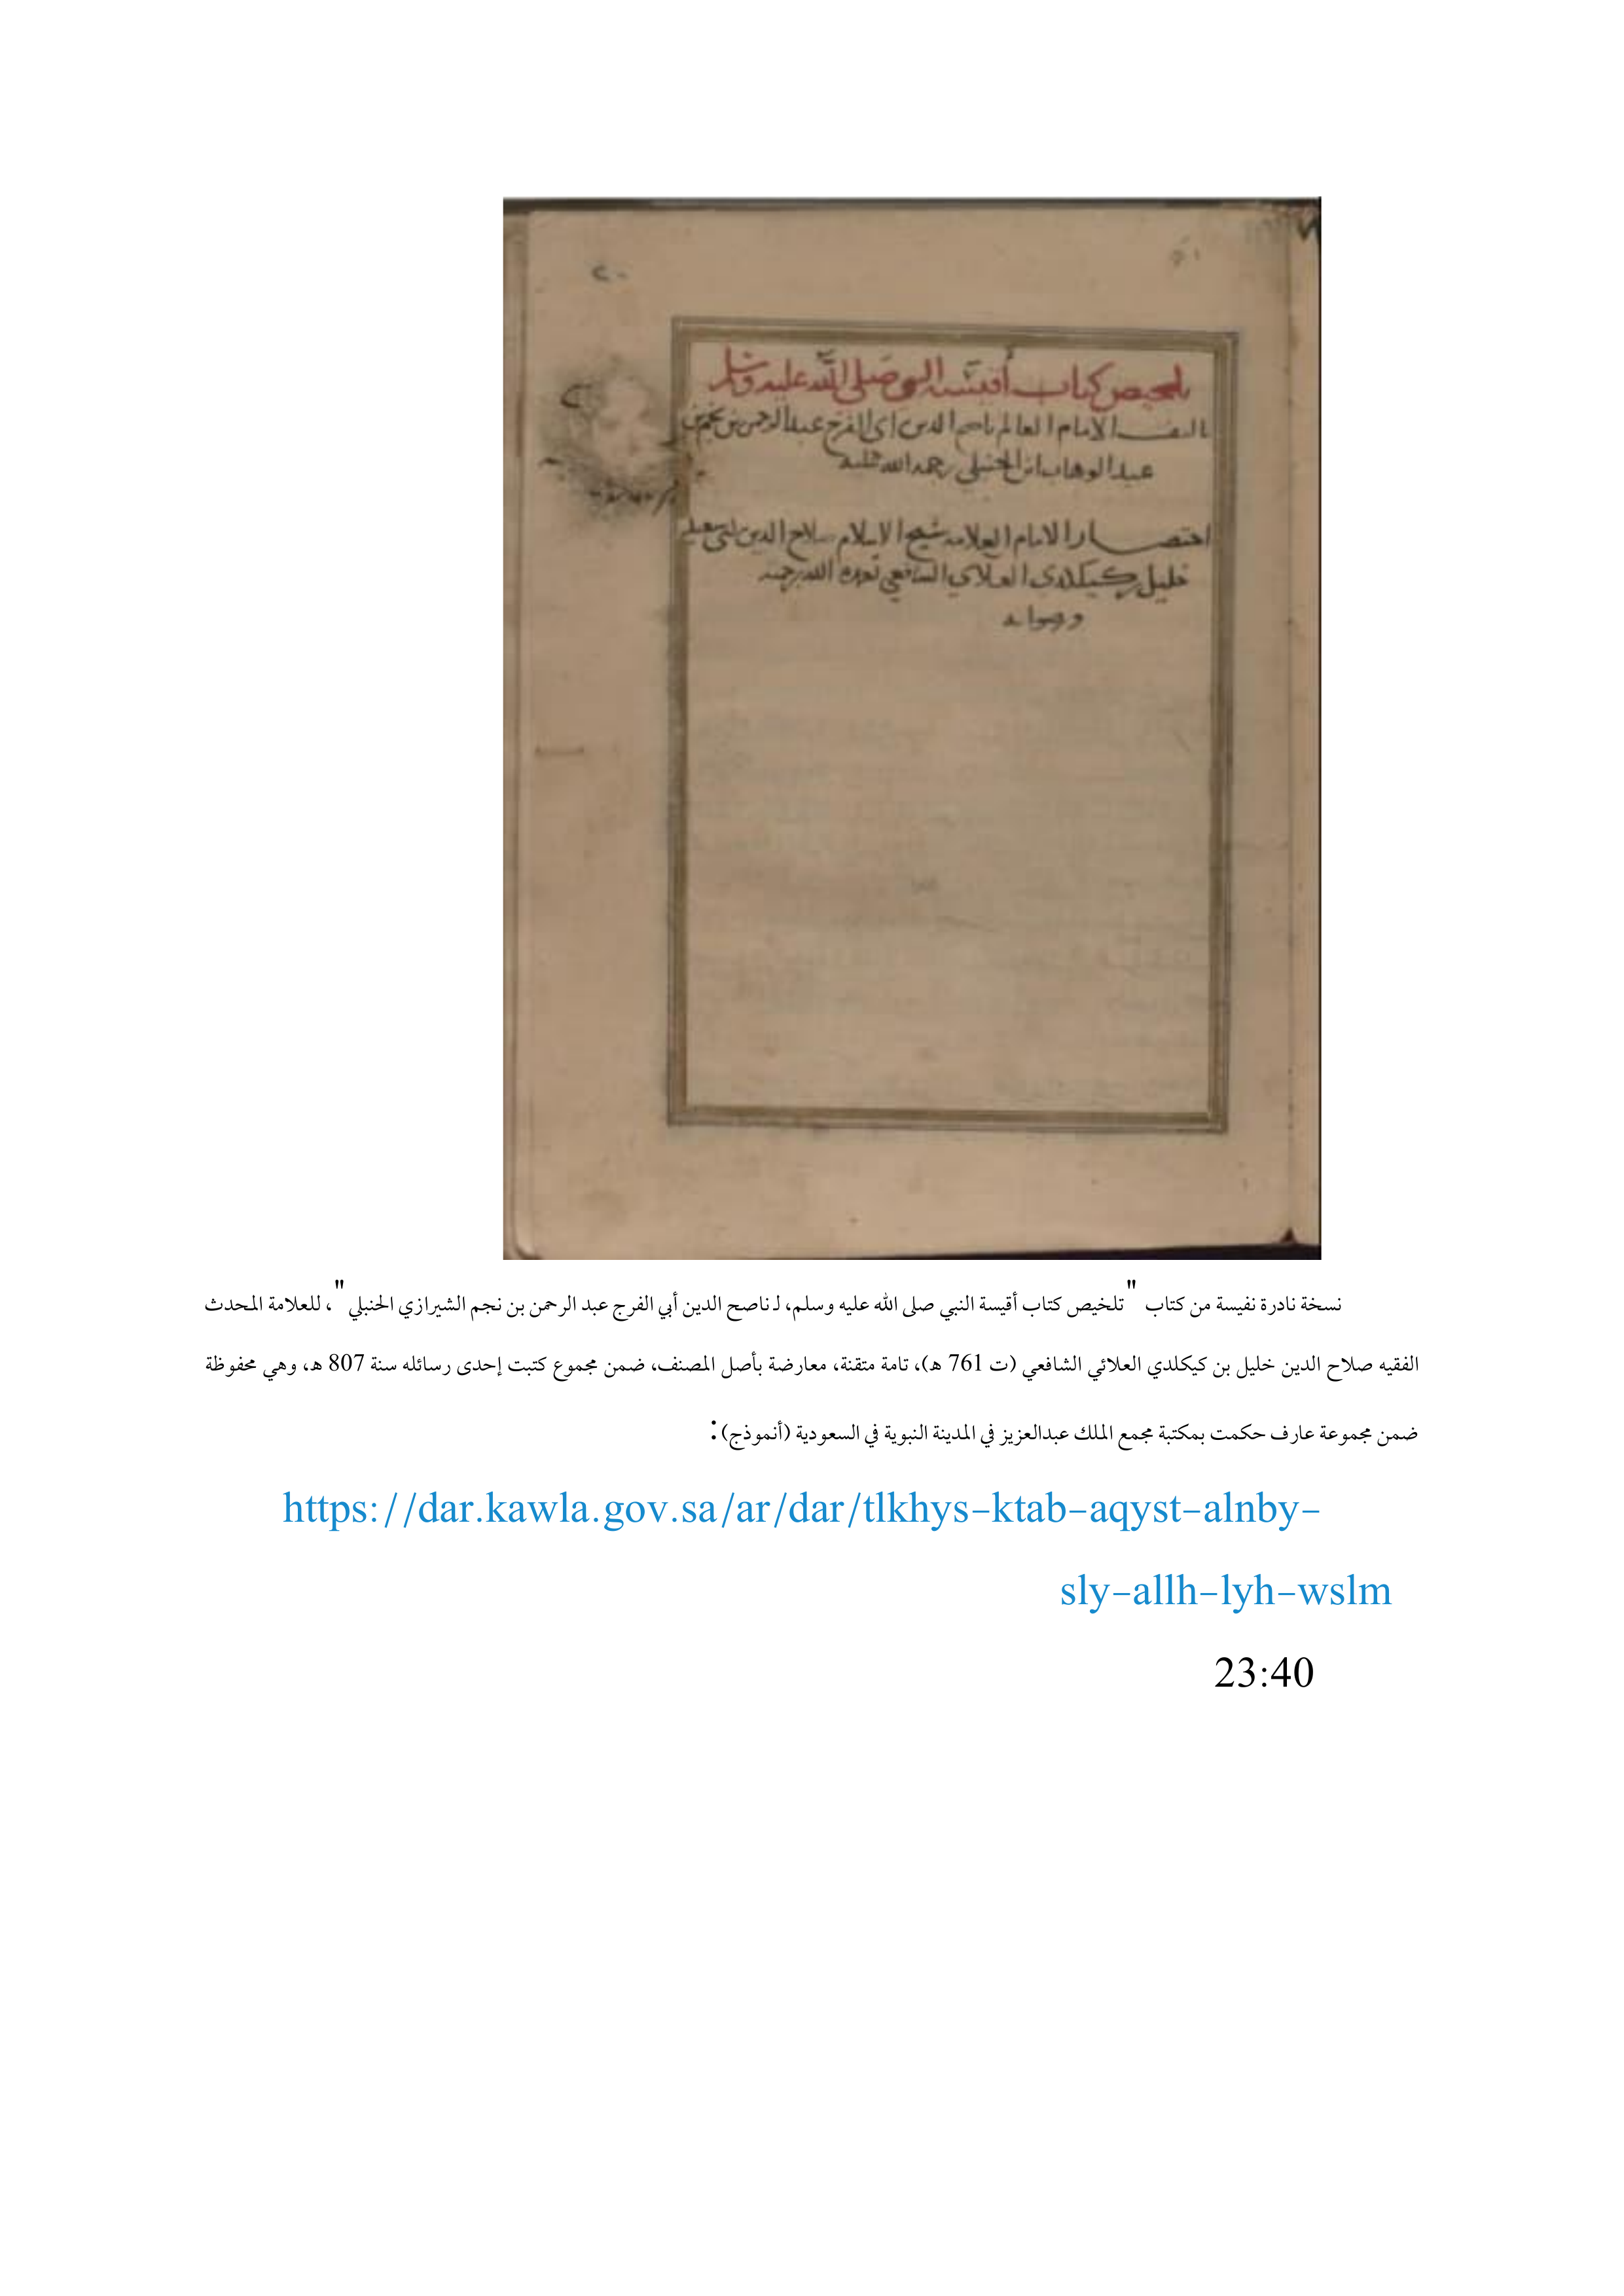 تلخيص كتاب أقيسة النبي صلى الله عليه وسلم
تاليف الامام العالم ناصح الدين ابي الفرج عبد الرحمن بن نجم بن
عبد الوهاب ابن الحنبلي رحمة الله عليه
اختصار الامام العلامة شيخ الاسلام صلاح الدين ابي سعيد
خليل بن كيكلدي العلاي الشافعي تغمده الله برحمته
ورضوانه
نسخة نادرة نفيسة من كتاب "تلخيص كتاب أقيسة النبي صلى الله عليه وسلم، لـ ناصح الدين أبي الفرج عبد الرحمن بن نجم الشيرازي الحنبلي"، للعلامة المحدث
الفقيه صلاح الدين خليل بن كيكلدي العلائي الشافعي (ت 761 هـ)، تامة متقنة، معارضة بأصل المصنف، ضمن مجموع كتبت إحدى رسائله سنة 807 هـ، وهي محفوظة
ضمن مجموعة عارف حكمت بمكتبة مجمع الملك عبدالعزيز في المدينة النبوية في السعودية (أنموذج):
https://dar.kawla.gov.sa/ar/dar/tlkhys-ktab-aqyst-alnby-
sly-allh-lyh-wslm
23:40